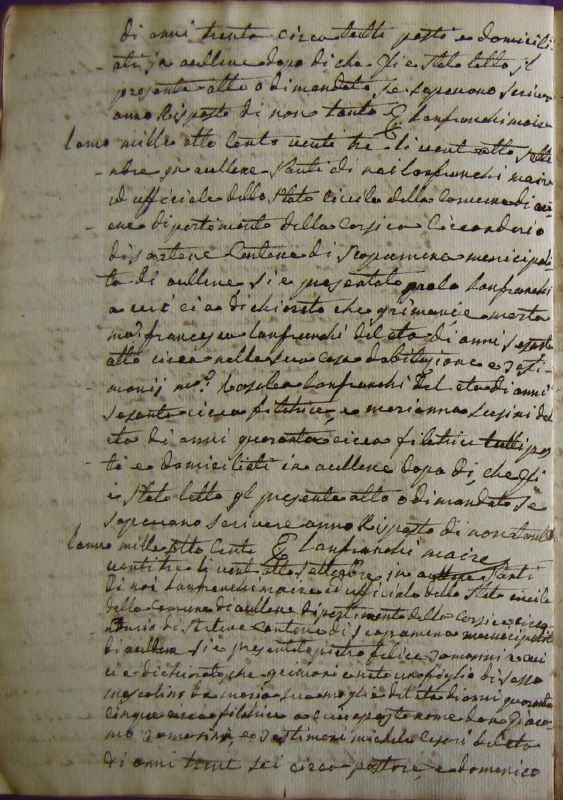 di anni trenta circa tutti postti e domicili
ati in aullene dopo di che gli e stato letto jl
presente atto o dimandato se sapevono scrivere
anno Risposto di non tanto E Lanfranchi maire
lanno mille otto cento venti tre li vent otto sette
nbre in aullene avanti di noi Lanfranchi maire
ed ufficiale dello stato civile della comune di aul
ene dipertimento della corsica Circonderio
di sartene Cantone di Scopamena municipali
ta di aullene si e presentato paolo Lanfranchi
a cui ci a dichiarato che grimani e morta
ma francesca Lanfranchi del eta di anni
otto circa nella sua casa dabittazione e testi
monij Lanfranchi del eta di anni
sesanta circa filatrice, e marianna Lucini del
eta di anni quaranta circa filatrice tutti pos
ti e domiciliati in aullene dopo di che gli
e stato letto jl presente atto o dimandato se
sapevano scrivere anno Risposto di non tanto
lanno mille otto cento E Lanfranchi maire
venti tre li vent otto settenbre in aullene avanti
di noi Lanfranchi maire e ufficiale dello stato civile
della comune di aullene dipertimento della corsica circo
nderio di Sartene Cantone di scopamena municipalita
di aullene si e presentato pietro felice a cui
ci a dichiarato che e nato un figlio di sesso
mascolino da maria sua moglie del eta di anni quaranta
cinque circa filatrice a cui a posto nome don giaco
mo e testimoni michele Cesari del eta
di anni trent sei circa pastore, e domenico